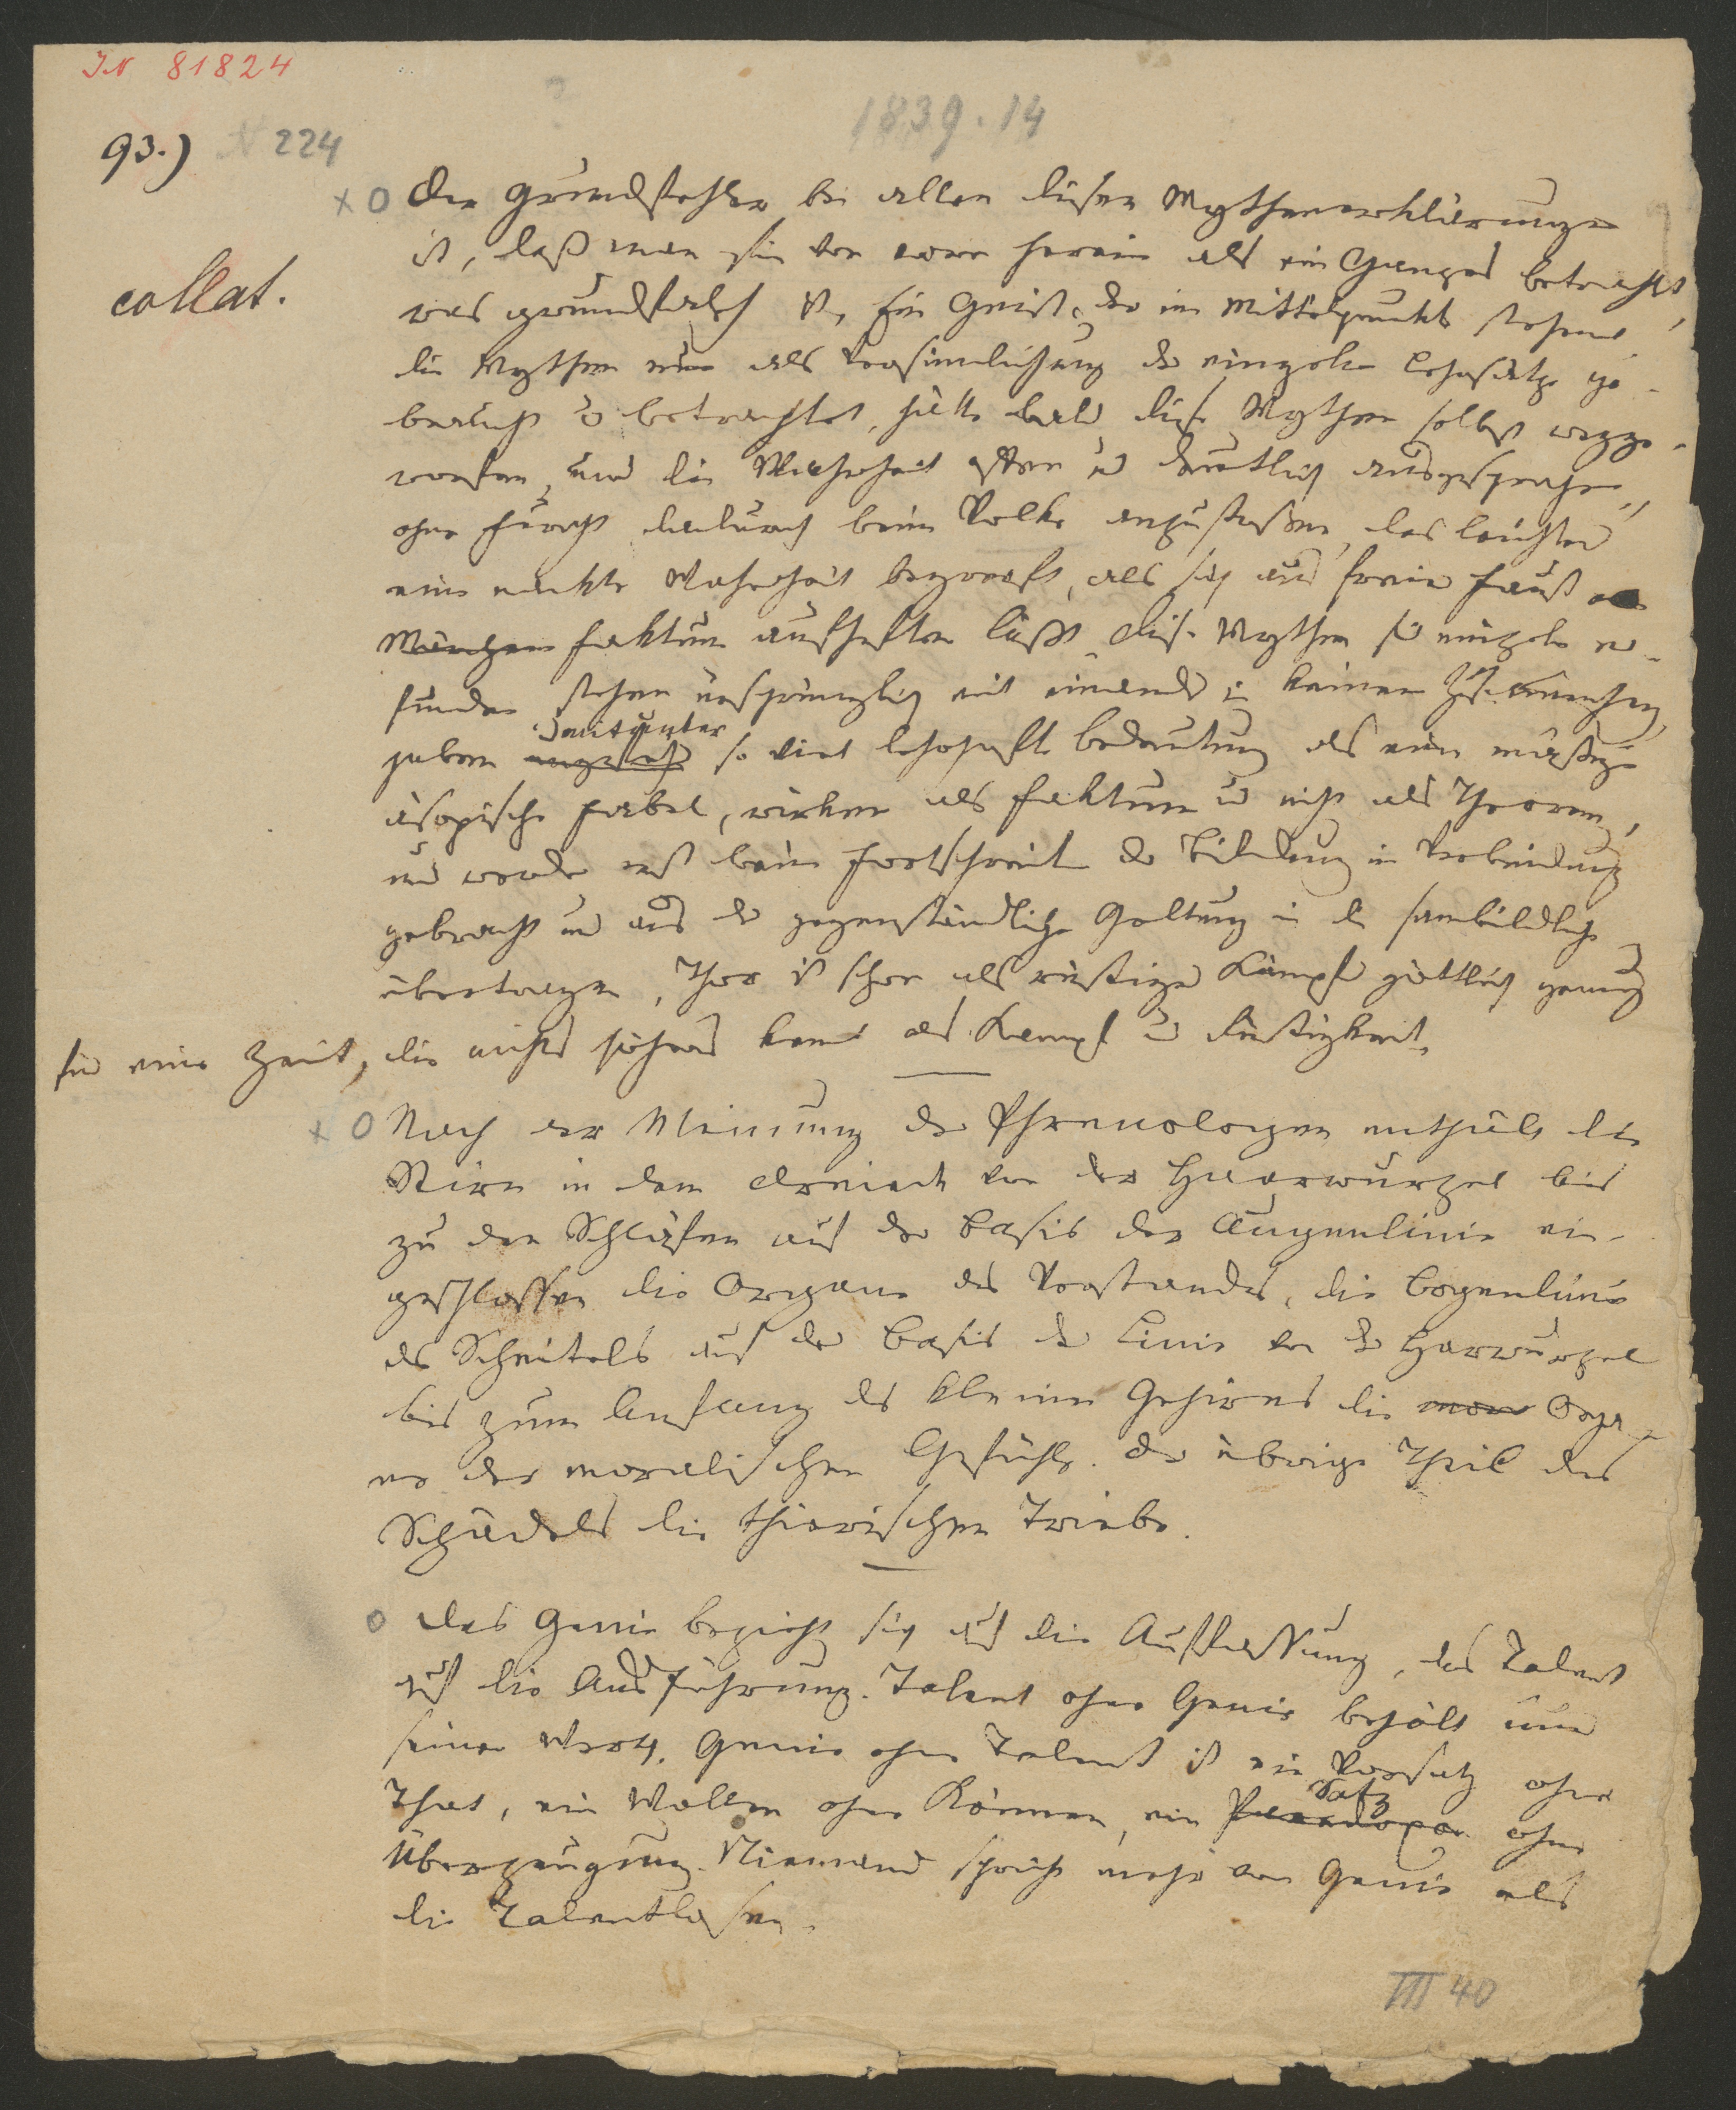 IN 81824
1839.14
93.) N 224
collat.
x o Der Grundfehler bei allen diesen Mythenerklärungen
ist, daß man sie von vorn herein als ein Ganzes betrachtet,
was grundfalsch ist. Ein Geist, der im Mittelpunkte stehend
die Mythen nur als Versinnlichung der einzelnen Lehrsätze ge-
braucht u betrachtet, hätte bald diese Mythen selbst wegge-
worfen, und die Wahrheit offen u deutlich ausgesprochen,
ohne Furcht dadurch beim Volke anzustoßen, das leichter
eine nackte Wahrheit begreift, als sich aus freier Faust ein
Mengen Faktum aufheften läßt. Diese Mythen sie einzeln er-
funden stehen ursprünglich mit einander in keinem Zusammenhang
haben mitunter so viel lehrhafte Bedeutung als eine mäßige
äsopische Fabel, wirken als Faktum u nicht als Theorem,
und werden erst beim Fortschreiten der Bildung in Verbindung
gebracht und aus der gegenständlichen Geltung in die sinnbildliche
übertragen. Thor ist schon als rüstiger Kämpfer göttlich genug
für eine Zeit, die nichts höheres kennt als Kampf u Rüstigkeit.
x o Nach der Meinung der Phrenologen enthält die
Stirn in dem Dreieck von der Haarwurzel bis
zu den Schläfen auf der Basis der Augenlinie ein-
geschlossen die Organe des Verstandes, die Bogenlinie
des Scheitels auf der Basis der Linie von der Harwurzel
bis zum Anfang des kleinen Gehirnes die mor Orga-
ne der moralischen Gefühle. Der übrige Theil des
Schädels die thierischen Triebe.
o Das Genie bezieht sich auf die Auffassung, das Talent
auf die Ausführung. Talent ohne Genie behält immer
seinen Werth. Genie ohne Talent ist ein Vorsatz ohne
That, ein Wollen ohne Können, ein Paradoxon Satz ohne
Überzeugung. Niemand spricht mehr von Genie als
die Talentlosen.
III 40